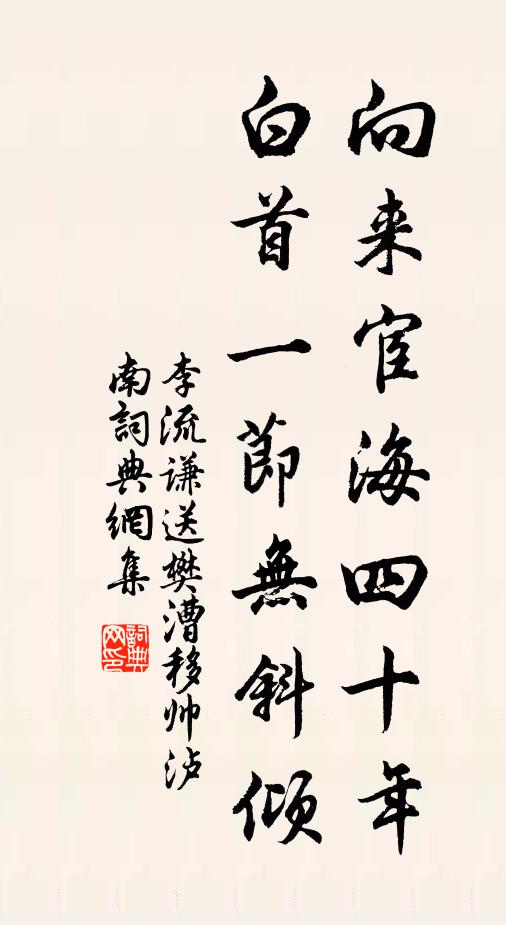 向来宦海四十年
白首一節無斜傾
李流谦送樊漕移帅泸
南詞典網集
詞典
网印